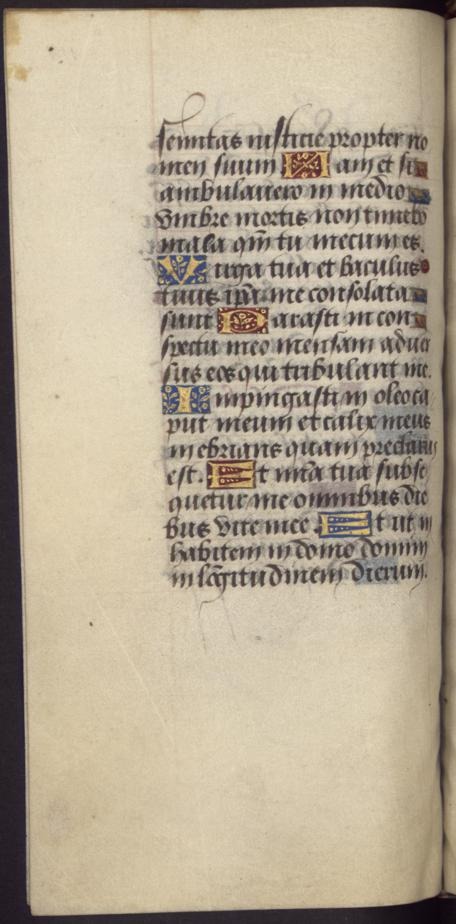 semitas iusticie propter no
men suum Nam et si
ambulauero in medio
vmbre mortis non timebo
mala qm̄ tu mecum es.
Virga tua et baculus
tuus ip̄a me consolata
sunt Parasti in con
spectu meo mensam aduer
sus eos qui tribulant me.
Inpingasti in oleo ca
put meum et calix meus
inebrians quam preclarus
est. Et mīa tua subse
quetur me omnibus die
bus vite mee. Et ut in
habitem in domo domini
in lōgitudinem dierum.